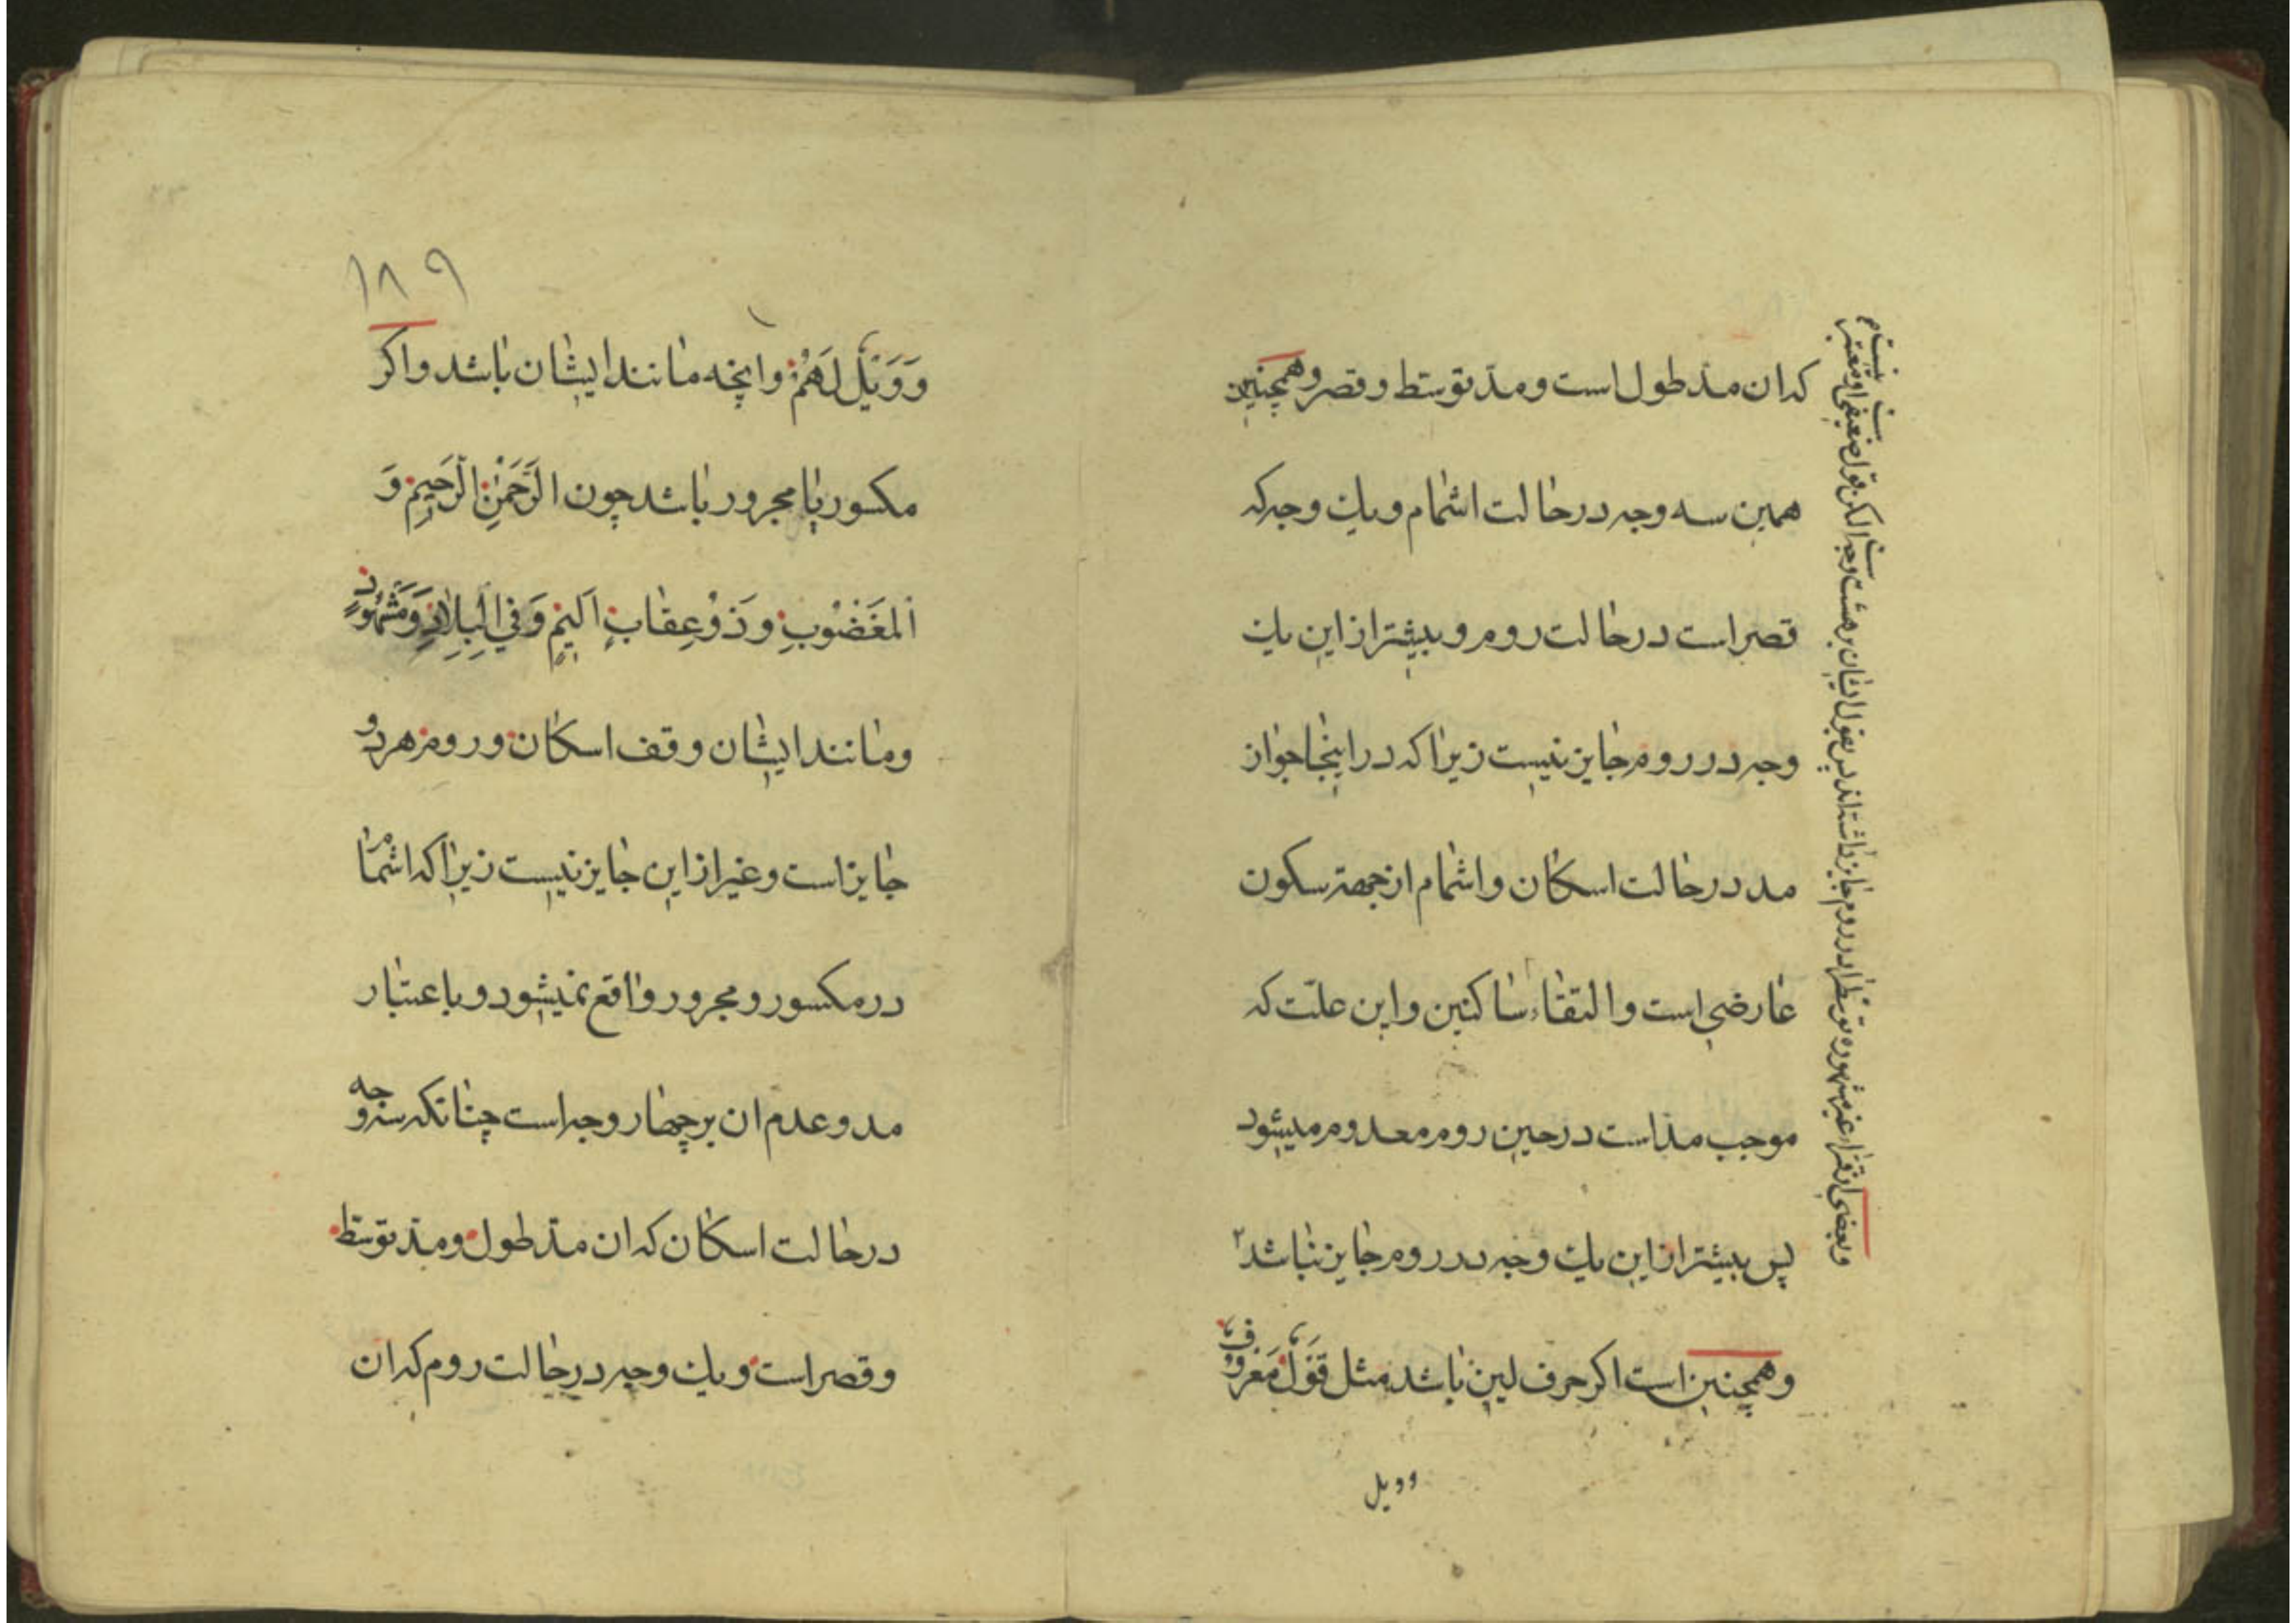 که ان مدّ طول است و مدّ توسّط و قصر و همچنین
همین سه وجه در حالت اشمام و یك وجه که
قصر است در حالت روم و بیشتر از این یك
وجه در روم جایز نیست زیرا که در اینجا جواز
مد در حالت اسکان و اشمام از جهة سکون
عارضی است و التقاء ساکنین و این علّت که
موجب مدّ است در حین روم معدوم میشود
پس بیشتر از این یك وجه در روم جایز نباشد ۲
و همچنین است اکر حرف لین باشد مثل قَوْلٌ مَعْرُوفٌ
وویل
وبعضی از قراء غیر مشهوره توسّط را در روم جایز داشته اند پس بقول ایشان بر هشت وجه الکن قول ضعیفی
او معتبر نیست م
۱۸۹
وَ وَیْلٌ لَهُمْ وانچه مانند ایشان باشد واکر
مکسور یا مجرور باشد چون الرَّحْمٰنِ الرَّحِیمِ وَ
اَلْمَغْضُوبِ و ذُوْ عِقٰابٍ اَلِیْمٍ وَ فِی الْبِلٰادِ وَ مَشْهُوْدٍ
ومانند ایشان وقف اسکان و روم هر دو
جایز است و غیر از این جایز نیست زیرا که اشمام
در مکسور و مجرور واقع نمیشود و باعتبار
مد و عدم ان بر چهار وجه است چنانکه سه وجه
در حالت اسکان که ان مدّ طول و مدّ توسّط
و قصر است و یك وجه در حالت روم که ان